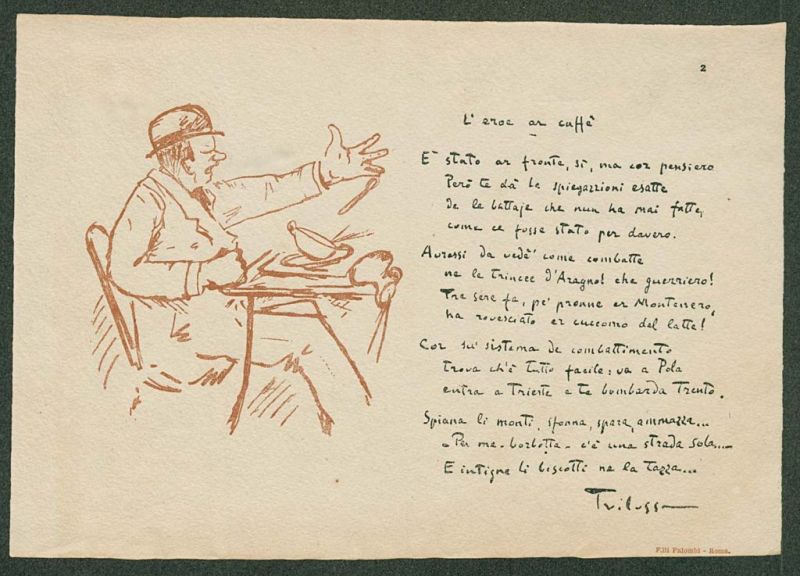 2
L'eroe ar caffè
È stato ar fronte, sì, ma cor pensiero
Però te dà le spiegazzioni esatte
de le battaje che nun ha mai fatte,
come ce fosse stato per davero.
Avressi da vedé come combatte
ne le trincee d'Aragno! che guerriero!
Tre sere fa, pe' pronne er Montenero,
ha rovesciato er cuccomo del latte!
Cor su' sistema de combattimento
trova ch'è tutto facile: va a Pola
entra a Trieste e te bombarda Trento.
Spiana li monti, sfonna, spara, ammazza...
- Per me - borbotta - c'è una strada sola...
E intigne li biscotti ne la tazza...
Trilussa
F.lli Palombi - Roma.